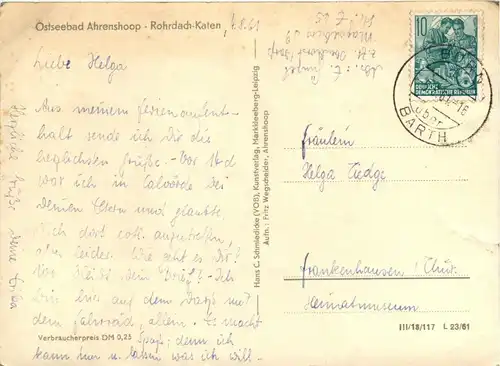 Ostseebad Ahrenshoop - Rohrdach-Katen
1.8.61
Liebe Helga
Aus meinem Ferienaufent-
halt sende ich Dir die
herzlichsten Grüße. - Vor 14 d
war ich in Calvörde bei
Deinen Eltern und glaubte
Dich dort evtl. anzutreffen,
aber leider. Wie geht es Dir?
Wo bleibt Dein Brief? - Ich
bin hier auf dem Darß mit
dem Fahrrad, allein. Es macht
Spaß; denn ich
kann tun u. lassen was ich will. -
Herzliche Grüße Deine
Verbraucherpreis DM 0,25
Hans C. Schmiedicke (VOB), Kunstverlag, Markkleeberg-Leipzig
Aufn.: Fritz Wegscheider, Ahrenshoop
Abs.: E.
Magdeburg
10
DEUTSCHE
DEMOKRATISCHE REPUBLIK
BARTH
Fräulein
Helga Tiedge
Frankenhausen / Thür.
Heimatmuseum
III/18/117 L 23/61